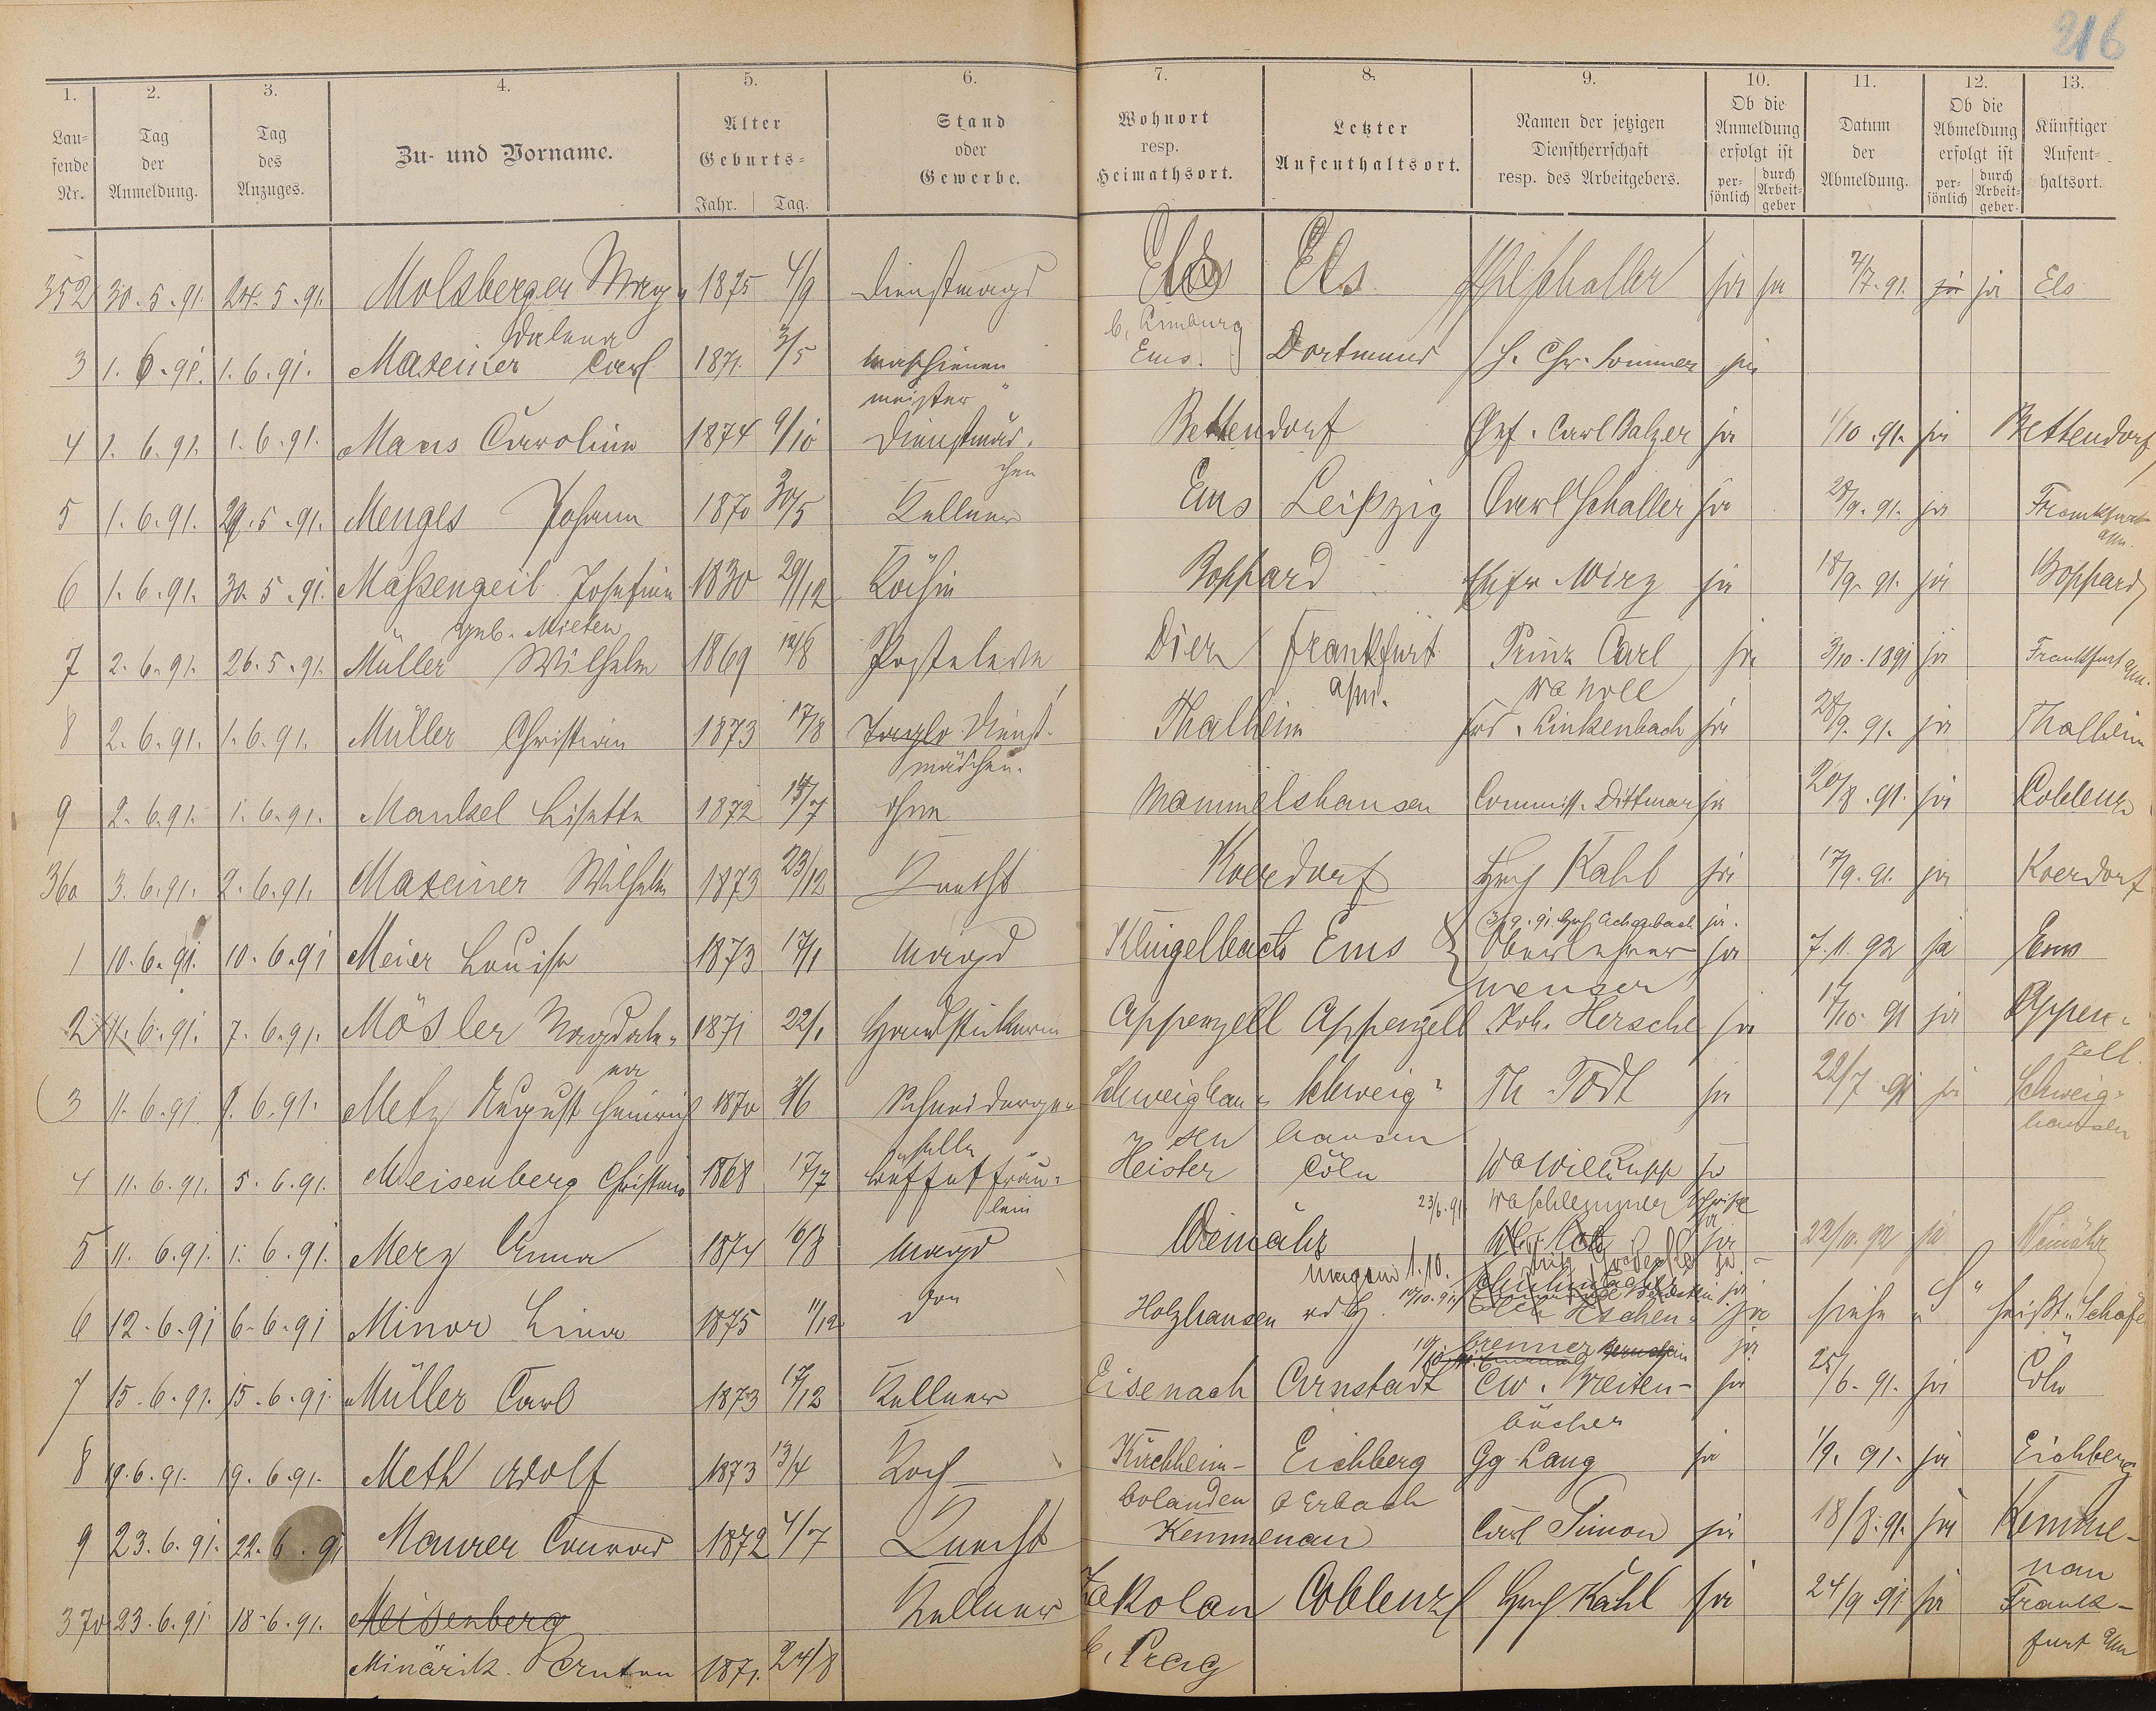 216
1. 2. 3. 4. 5. 6. 7. 8. 9. 10. 11. 12. 13.
Laufende Nr. | Tag der Anmeldung. | Tag des Anzuges. | Zu- und Vorname. | Alter Geburts- Jahr. Tag. | Stand oder Gewerbe. | Wohnort resp. Heimathsort. | Letzter Aufenthaltsort. | Namen der jetzigen Dienstherrschaft resp. des Arbeitgebers. | Ob die Anmeldung erfolgt ist persönlich durch Arbeitgeber | Datum der Abmeldung. | Ob die Abmeldung erfolgt ist persönlich durch Arbeitgeber | Künftiger Aufenthaltsort.
352 30.5.91. 24.5.91. Molsberger Mag- 1875 4/9 Dienstmagd Els Els Schaller ja ja 2/7.91. ja ja Els
dalena b. Limburg
3 1.6.91. 1.6.91. Maxeiner Carl 1871. 3/5 Maschinen Ems. Dortmund H. Chr. Sommer ja
meister
4 1.6.91. 1.6.91. Maus Caroline 1874 9/10 Dienstmäd- Bettendorf Gef. Carl Balzer ja 1/10.91. ja Bettendorf
chen
5 1.6.91. 29.5.91. Menges Johann 1870 30/5 Kellner Ems Leipzig Carl Schaller ja 28/9.91. ja Frankfurt
a/m.
6 1.6.91. 30.5.91. Maßengeil Josefine 1830 29/12 Köchin Boppard Ehefr Wirz ja 18/9.91. ja Boppard
geb. Mieten
7 2.6.91. 26.5.91. Müller Wilhelm 1869 12/8 Posteleve Diez Frankfurt Prinz Carl ja 3/10.1891 ja Frankfurt a/m.
a/m. Wa Noll
8 2.6.91. 1.6.91. Müller Christian 1873 17/8 Dienst- Thalheim Frd. Linkenbach ja 28/9.91. ja Thalheim
mädchen.
9 2.6.91. 1.6.91. Mankel Lisette 1872 14/7 ohne Mammelshausen Commiss. Dittmar ja 20/8.91. ja Coblenz
360 3.6.91. 2.6.91. Maxeiner Wilhelm 1873 23/12 Knecht Koerdorf Hch Kahl ja 17/9.91. ja Koerdorf
3/9.91. Achenbach ja.
1 10.6.91. 10.6.91 Meier Louise 1873 17/1 Magd Klingelbach Ems Oberlehrer ja 7.11.92 ja Ems
2 11.6.91. 7.6.91. Mösler Magdale- 1871 22/1 Handstickerin Appenzell Appenzell Joh. Hersche ja 17/10.91 ja Appen-
na zell.
3 11.6.91 9.6.91. Metz August Heinrich 1870 3/6 Schneiderge- Schweighau- Schweig- Th. Todt ja 22/7.91 ja Schweig-
selle sen hausen hausen
4 11.6.91. 5.6.91. Meisenberg Christine 1868 17/7 Buffetfräu- Heister Cöln Wa Will. Rupp ja
lein 23/6.91 Wa Schlemmer
5 11.6.91. 1.6.91. Merz Anna 1874 16/8 Magd Weinähr ja 22/10.92 ja Weinähr
1.10.
6 12.6.91 6.6.91 Minor Lina 1875 11/12 Holzhausen a.d.H. Eschen- ja siehe „S“ heißt „Schäfer
brenner ja
7 15.6.91. 15.6.91 Müller Carl 1873 17/12 Kellner Eisenach Arnstadt Ew. Breiten- ja 25/6.91. ja Cöln
bücher
8 19.6.91. 19.6.91. Meth Adolf 1873 13/4 Koch Kirchheim- Eichberg Gg Lang ja 1/9.91. ja Eichberg
bolanden b Erbach
9 23.6.91. 22.6.91 Maurer Conrad 1872 4/7 Knecht Kemmenau Carl Simon ja 18/8.91. ja Kemme-
nau
370 23.6.91 18.6.91. Meisenberg Kellner Zakolan Coblenz Hch Kahl ja 24/9.91 ja Frank-
Minárik Anton 1871. 24/8 b. Prag furt a/m